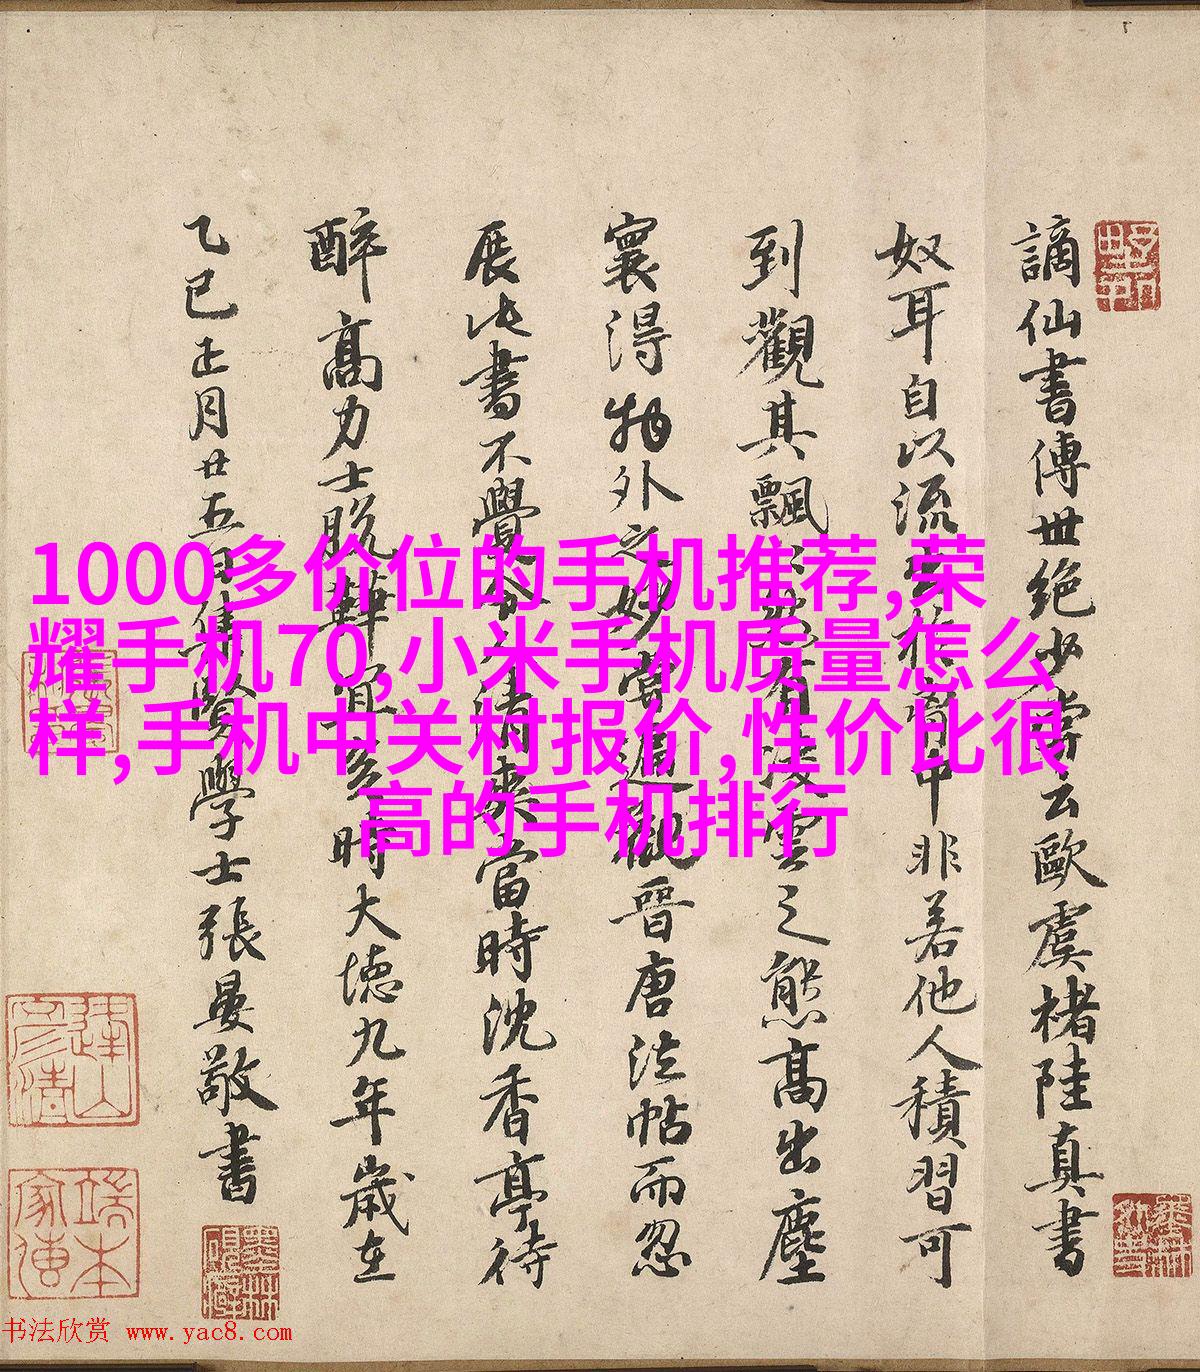 謫仙書傳世絕少嘗云歐虞褚陸真書
奴耳自以流出於胸中非若他人積習可
到觀其飄〻然有凌雲之態高出塵
寰得物外之妙嘗遍觀晉唐法帖而忽
展此書不覺令人清爽當時沈香亭待
醉高力士脫鞾宜矣時大德九年歲在
乙巳正月廿五日集賢學士張晏敬書
1000多价位的手机推荐,荣
耀手机70,小米手机质量怎么
样,手机中关村报价,性价比很
高的手机排行
书法欣赏 www.yac8.com